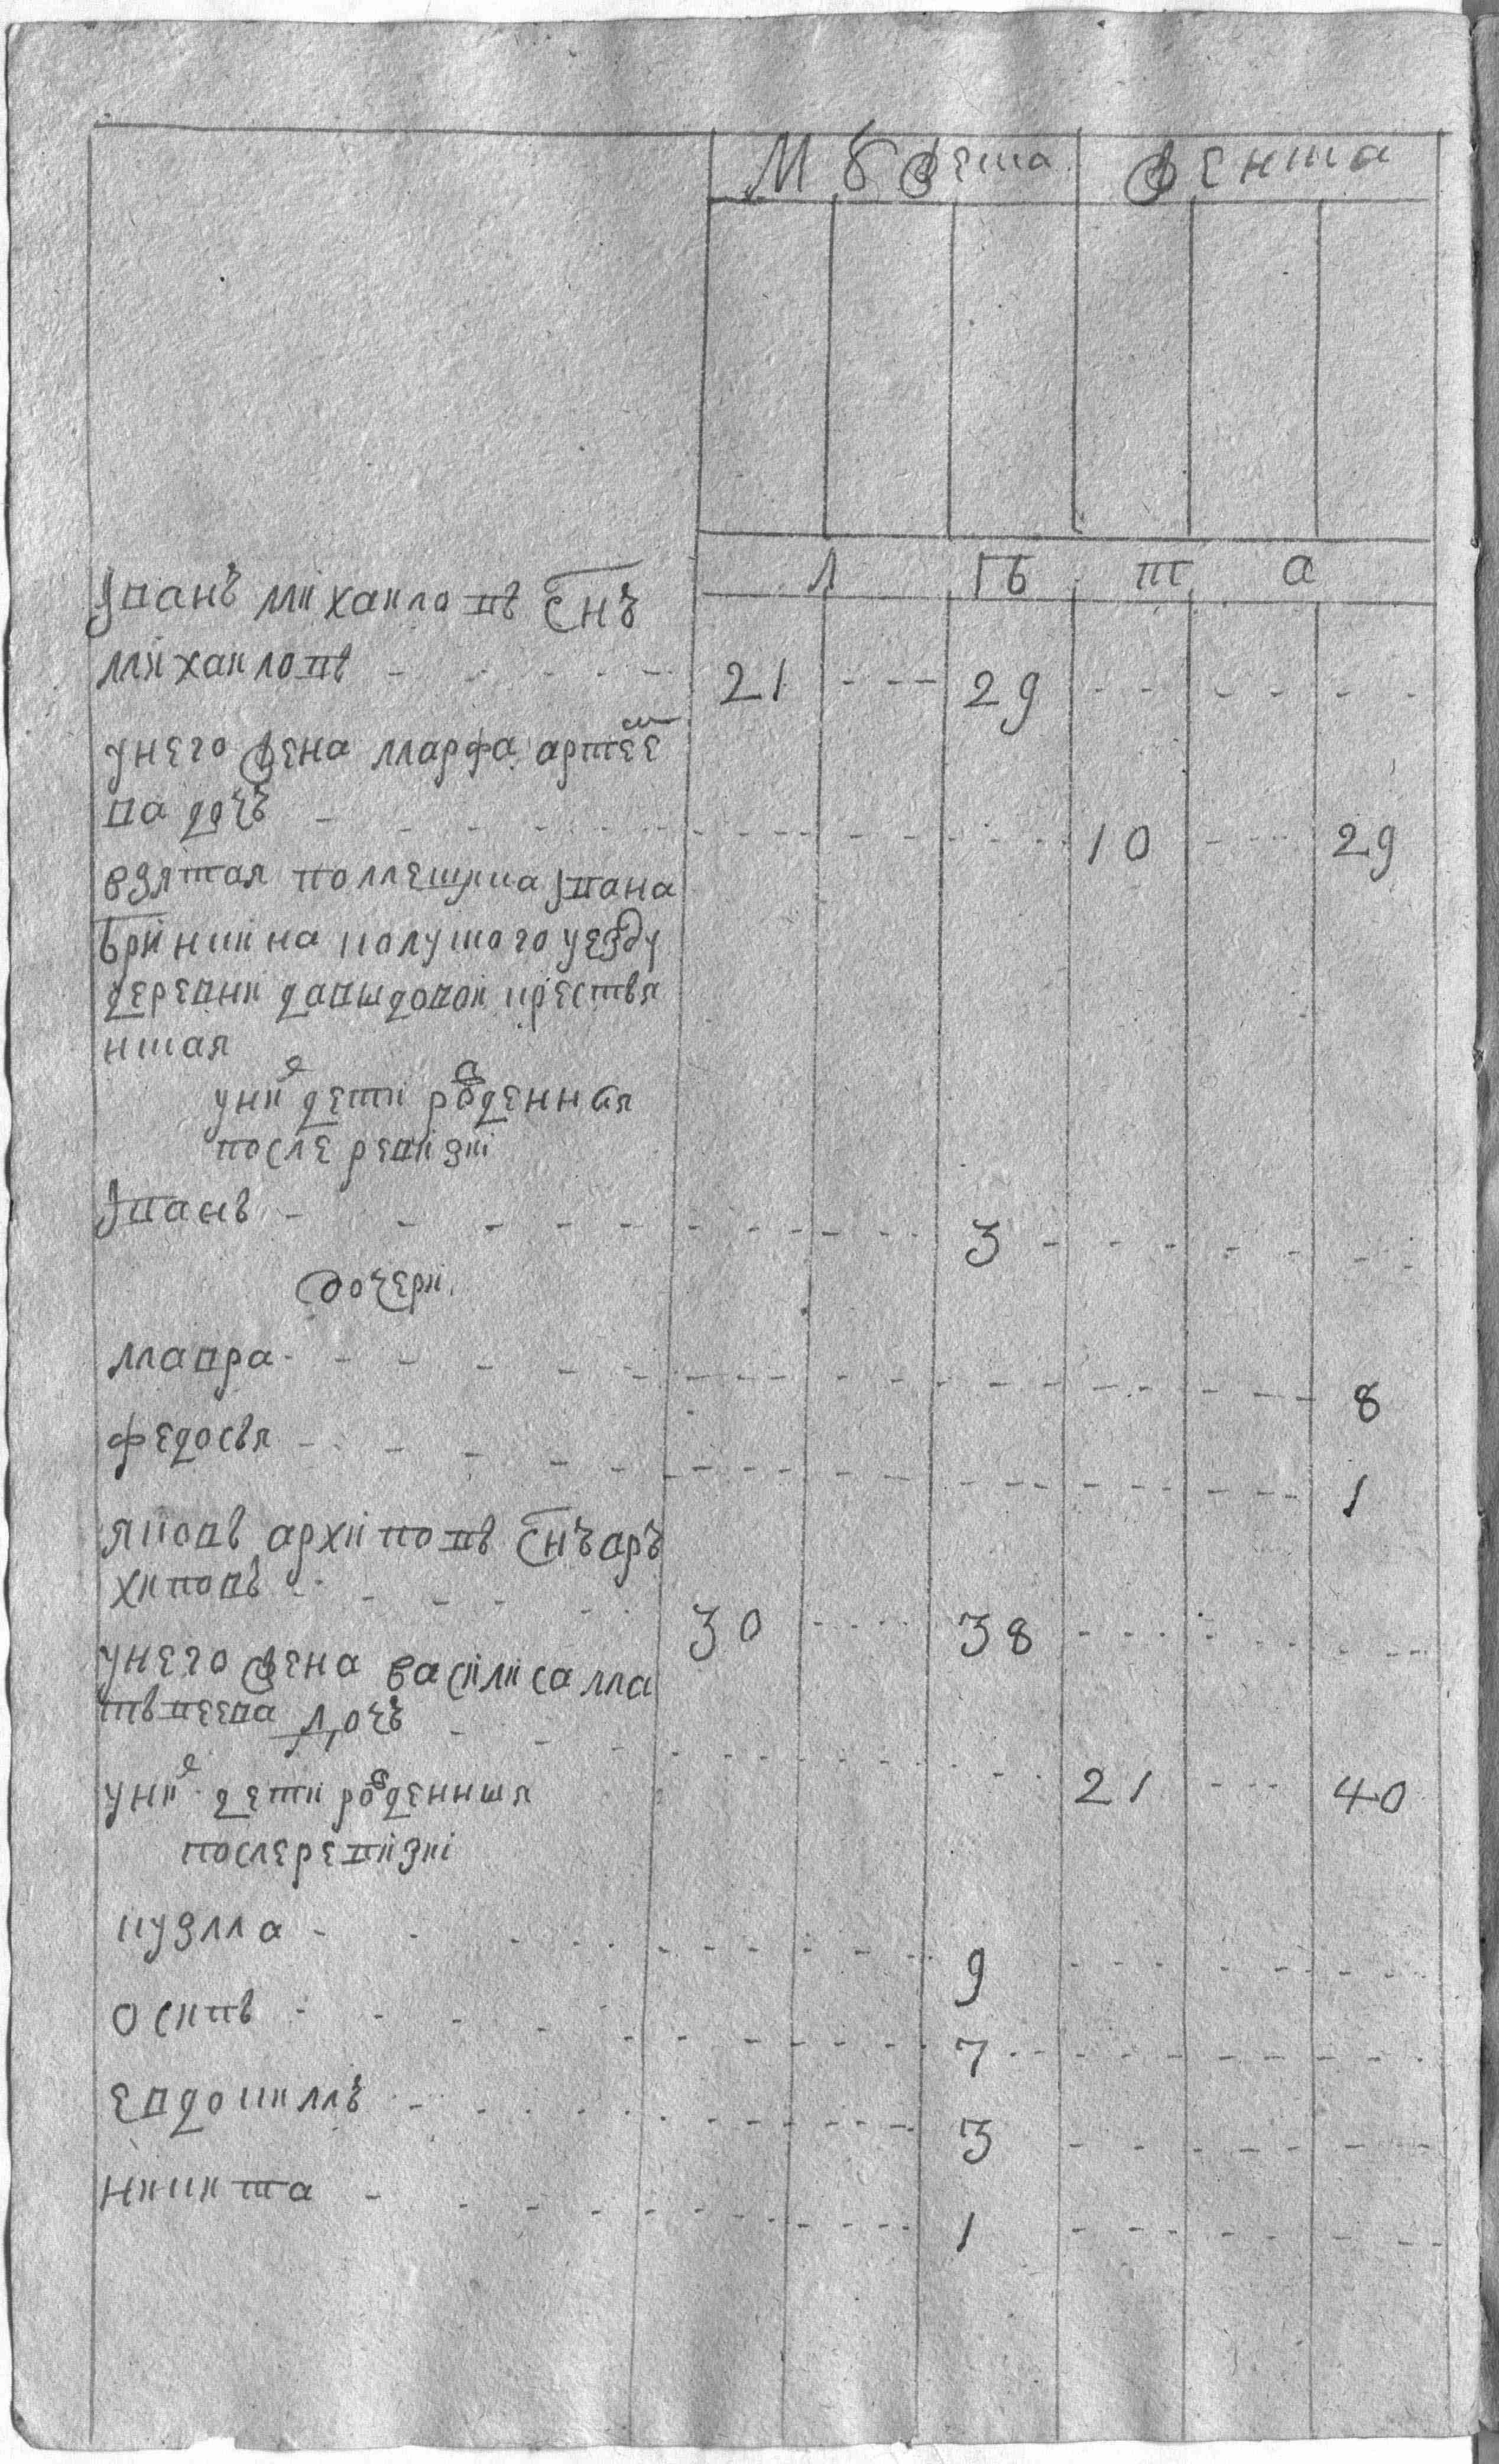 Мужеска женска
Л ѣ т а
Иванъ михаиловъ снъ
михаиловъ - - - - 21 - - - 29 - - - - - -
унего жена марфа артее
ва дочь - - - - - - - - - - 10 - - - 29
взятая помещика Ивана
на калушского уезду
деревни давыдовой крестья
нская
уних дети рожденныя
после ревизиі
Иванъ - - - - - - - - 3 - - - - - -
Дочери
мавра - - - - - - - - - - - - 8
федосья - - - - - - - - - - - - 1
яковъ архиповъ снъ аръ
хиповъ - - - - - 30 - - - - 38 - - - - - -
унего жена василиса ма
твѣева дочь - - - - - - - - 21 - - - 40
уних дети рожденныя
после ревизиі
кузма - - - - - - - - 9 - - - - - -
осипъ - - - - - - - - 7 - - - - - -
евдокимъ - - - - - - - - 3 - - - - - -
никита - - - - - - - - 1 - - - - - -